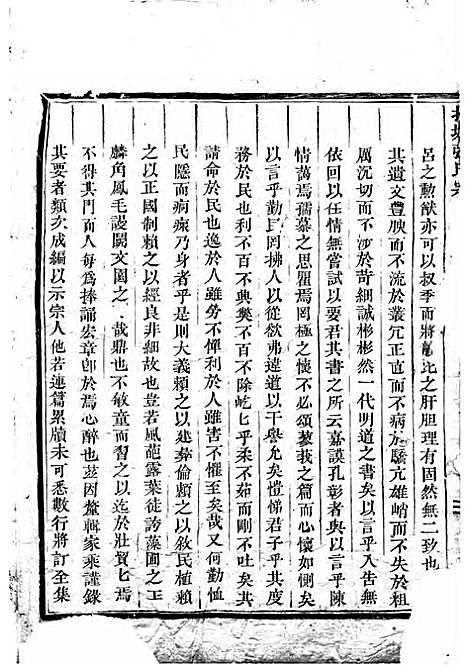 呂之勳猷亦可以叔季而將比之肝胆理有固然無二致也
其遺文豐腴而不流於叢冗正直而不病於驕亢雄峭而不失於粗
厲沉切而不涉於苛細誠彬彬然一代明道之書矣以言乎入告無
依回以任情無嘗試以要君其書之所云嘉謨孔彰者與以言乎陳
情藹焉孺慕之思瞿焉罔極之懷不必頌蓼莪之篇而心懷如惻矣
以言乎勸民罔拂人以從欲弗違道以干譽允矣愷悌君子乎其度
務於民也利不百不興獘不百不除屹乎柔不茹而剛不吐矣其
請命於民也逸於人雖勞不憚利於人雖害不懼至矣哉又何勤恤
民隱而痌瘝乃身者乎是則大義賴之以建葬倫賴之以敘民植賴
之以正國制賴之以經良非細故也豈若風葩露葉徒誇藻囿之工
麟角鳳毛謾闘文園之哉鼎也不敏童而習之以迄於壯贸匕焉
不得其門而人每為捧誦宏章卽於焉心醉也茲因釐輯家乘謹錄
其要者類次成編以示宗人他若連篇累牘未可悉數行將訂全集